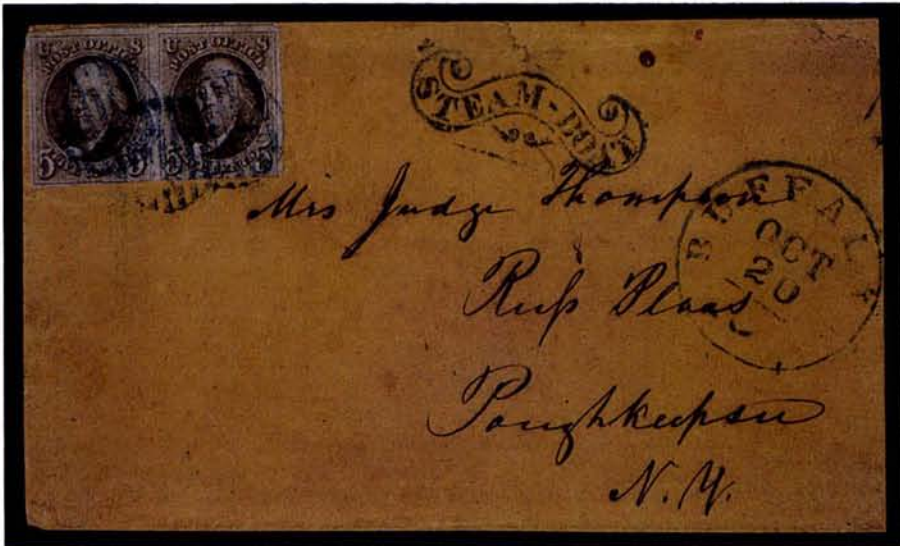 U POST OFFICE S
U POST OFFICE S
5 5
5 5
STEAM-BOAT
BUFFALO
OCT
20
Mrs Judge Thompson
Russ Plaas
Poughkeepsie
N.Y.